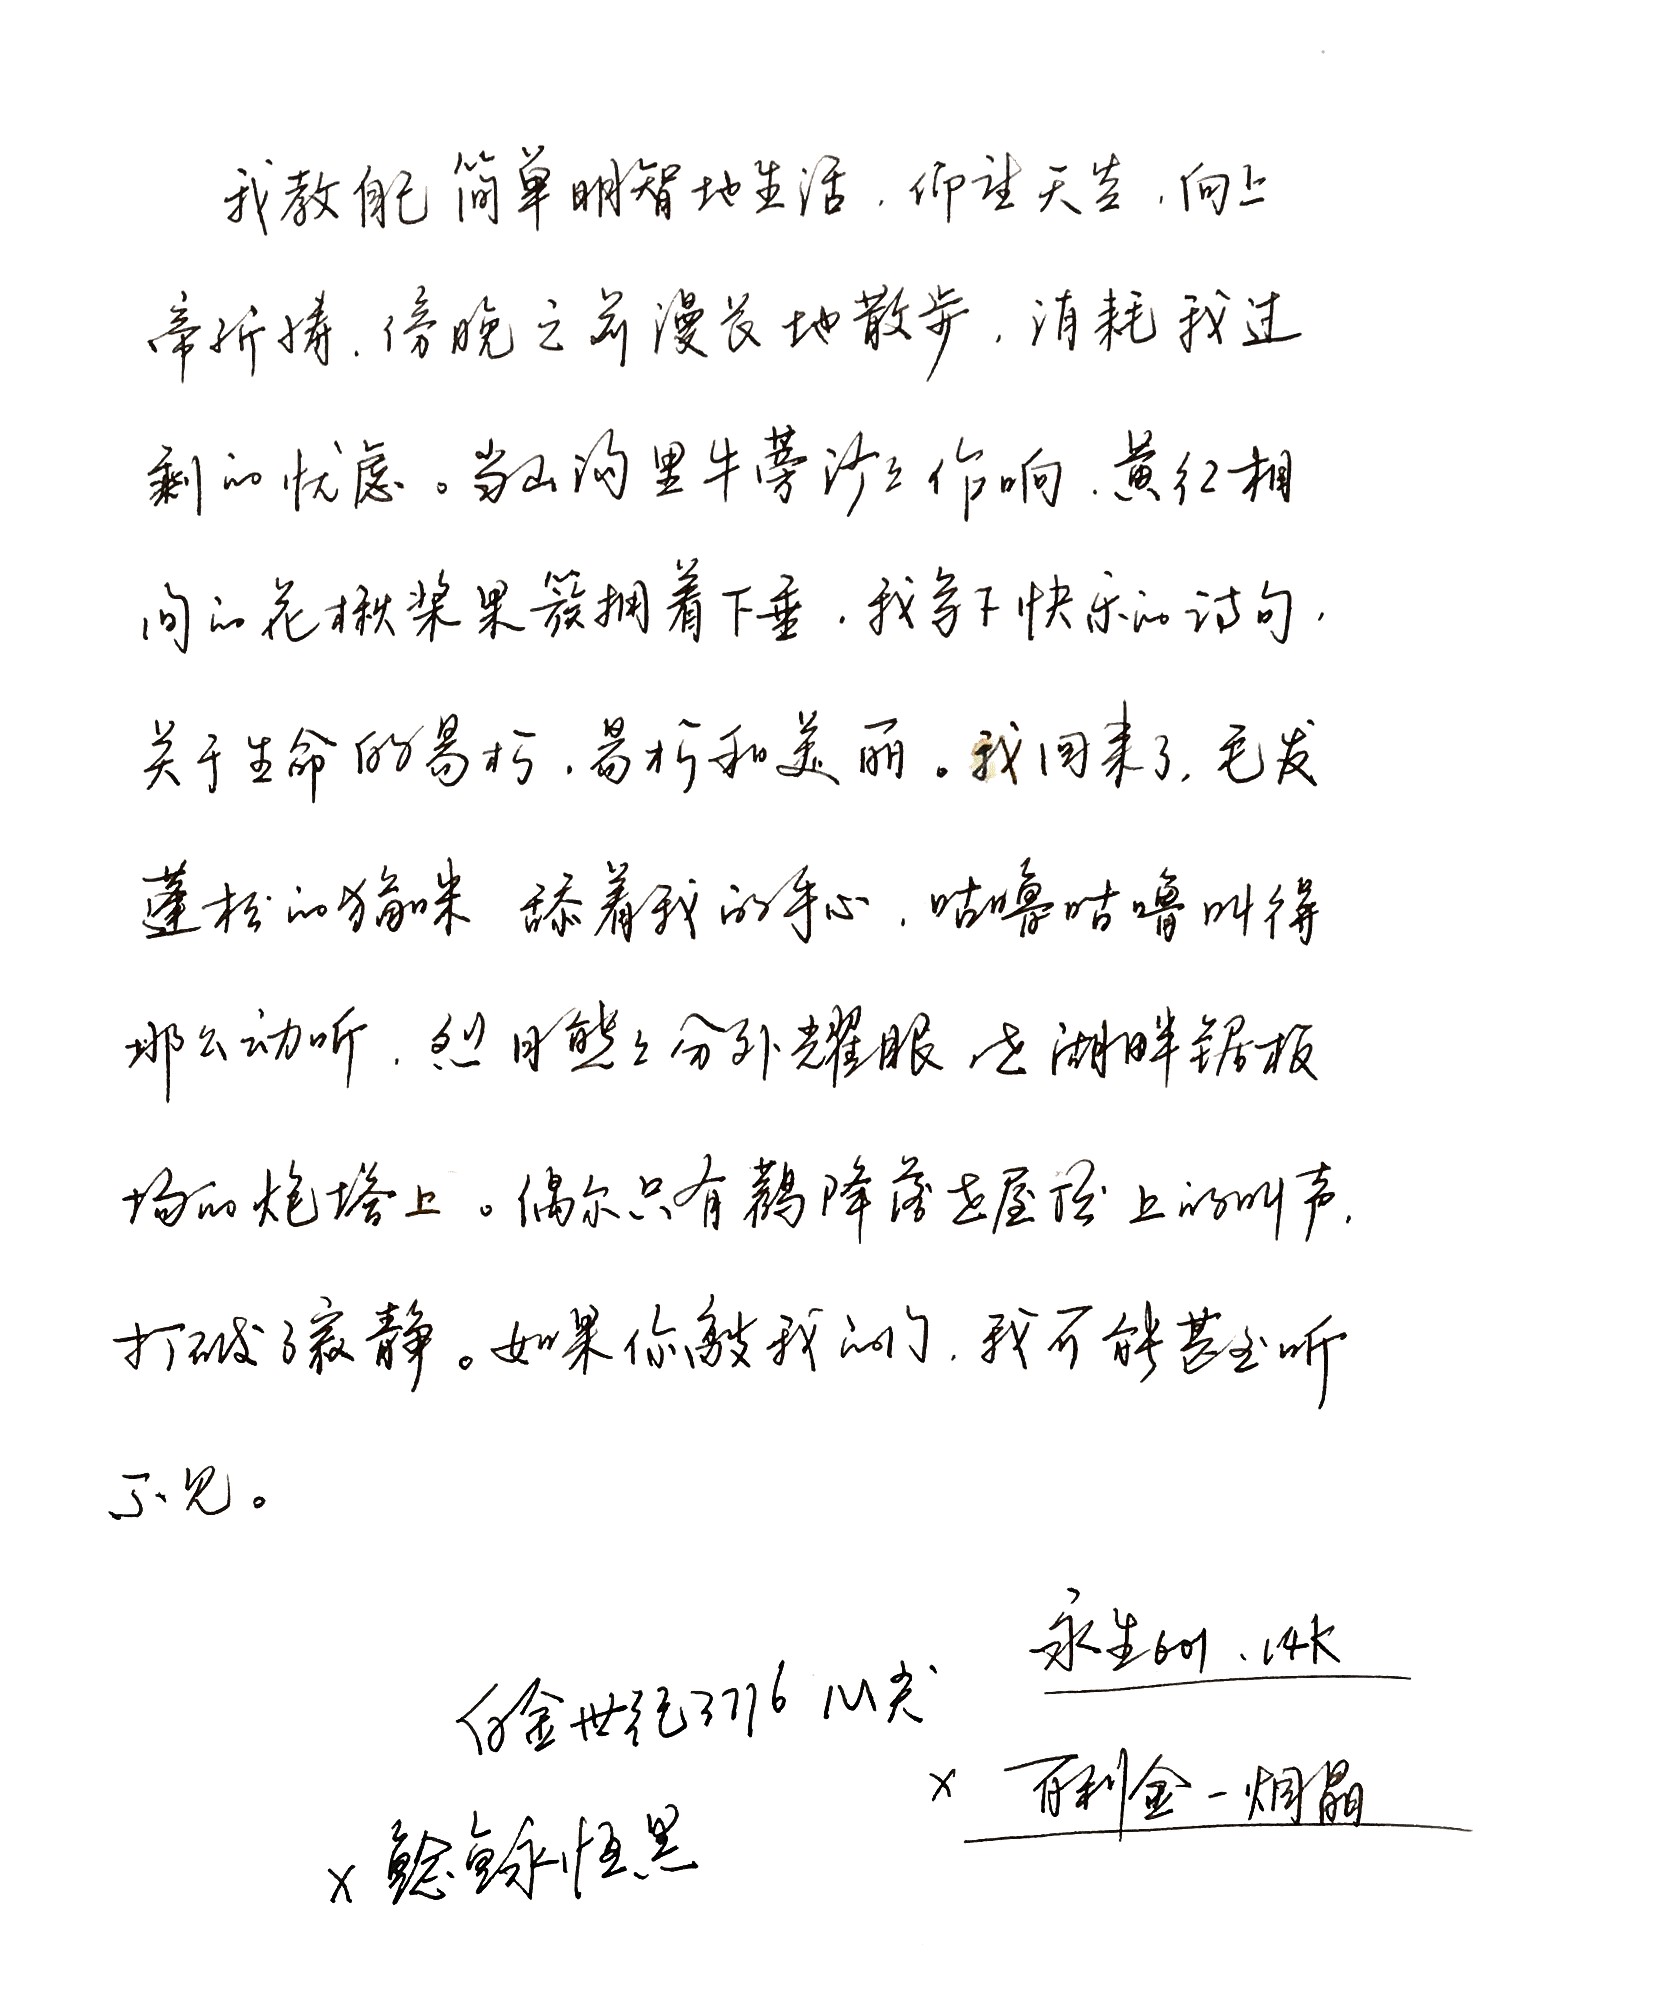 我教自己简单明智地生活，仰望天空，向上
帝祈祷，傍晚之前漫长地散步，消耗我过
剩的忧虑。当山沟里牛蒡沙沙作响，黄红相
间的花楸浆果簇拥着下垂，我写下快乐的诗句，
关于生命的易朽，易朽和美丽。我回来了，毛发
蓬松的猫咪舔着我的手心，咕噜咕噜叫得
那么动听，烈日熊熊分外耀眼，在湖畔锯板
场的炮塔上。偶尔只有鹳降落在屋顶上的叫声，
打破了寂静。如果你敲我的门，我可能甚至听
不见。
永生601，14K
白金世纪3776 M尖
× 百利金-烟晶
× 鲶鱼永恒黑